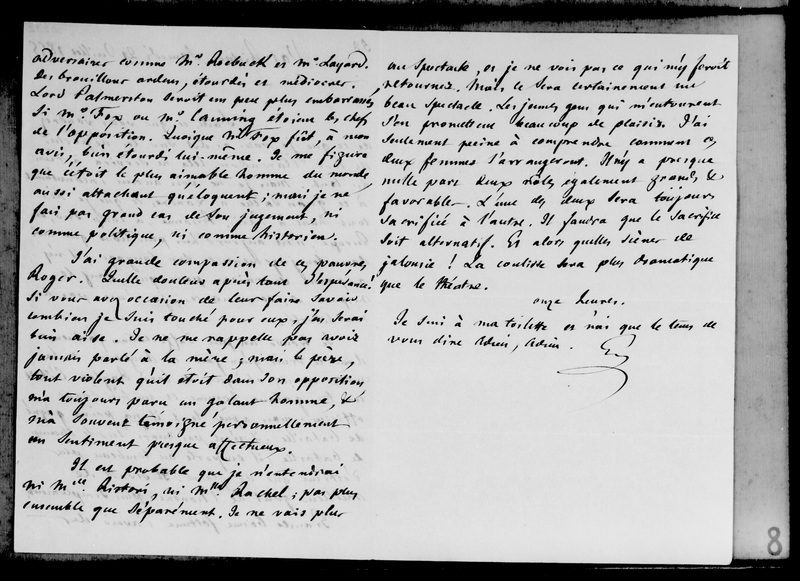 adversaires comme Mr Roebuck et Mr Layard.
Des brouillons ardens, étourdis et médiocres.
Lord Palmerston seroit un peu plus embarrassé
si Mr Fox ou Mr Canning étoient les chefs
de l'opposition. Quoique Mr Fox fût, à mon
avis, bien étourdi lui-même. Je me figure
que c'étoit le plus aimable homme du monde,
aussi attachant qu'éloquent; mais je ne
fais pas grand cas de son jugement, ni
comme politique, ni comme historien.
J'ai grande compassion de ces pauvres
Roger. Quelle douleur après tant d'espérance!
Si vous avez occasion de leur faire savoir
combien je suis touché pour eux, j'en serai
bien aise. Je ne me rappelle pas avoir
jamais parlé à la mère; mais le père,
tout violent qu'il étoit dans son opposition
m'a toujours paru un galant homme, &
m'a souvent témoigné personnellement
un sentiment presque affectueux.
Il est probable que je n'entendrai
ni Mlle Ristori, ni Mlle Rachel; pas plus
ensemble que séparément. Je ne vais plus
au spectacle, et je ne vois pas ce qui m'y feroit
retourner. Mais ce sera certainement un
beau spectacle. Les jeunes gens qui m'entourent
s'en promettent beaucoup de plaisir. J'ai
seulement peine à comprendre comment ces
deux femmes s'arrangeront. Il n'y a presque
nulle part deux rôles également grands &
favorables. L'une des deux sera toujours
sacrifiée à l'autre. Il faudra que le sacrifice
soit alternatif. Et alors quelles scènes de
jalousie! La coulisse sera plus dramatique
que le théâtre.
onze heures.
Je suis à ma toilette et n'ai que le tems de
vous dire adieu, adieu.
8